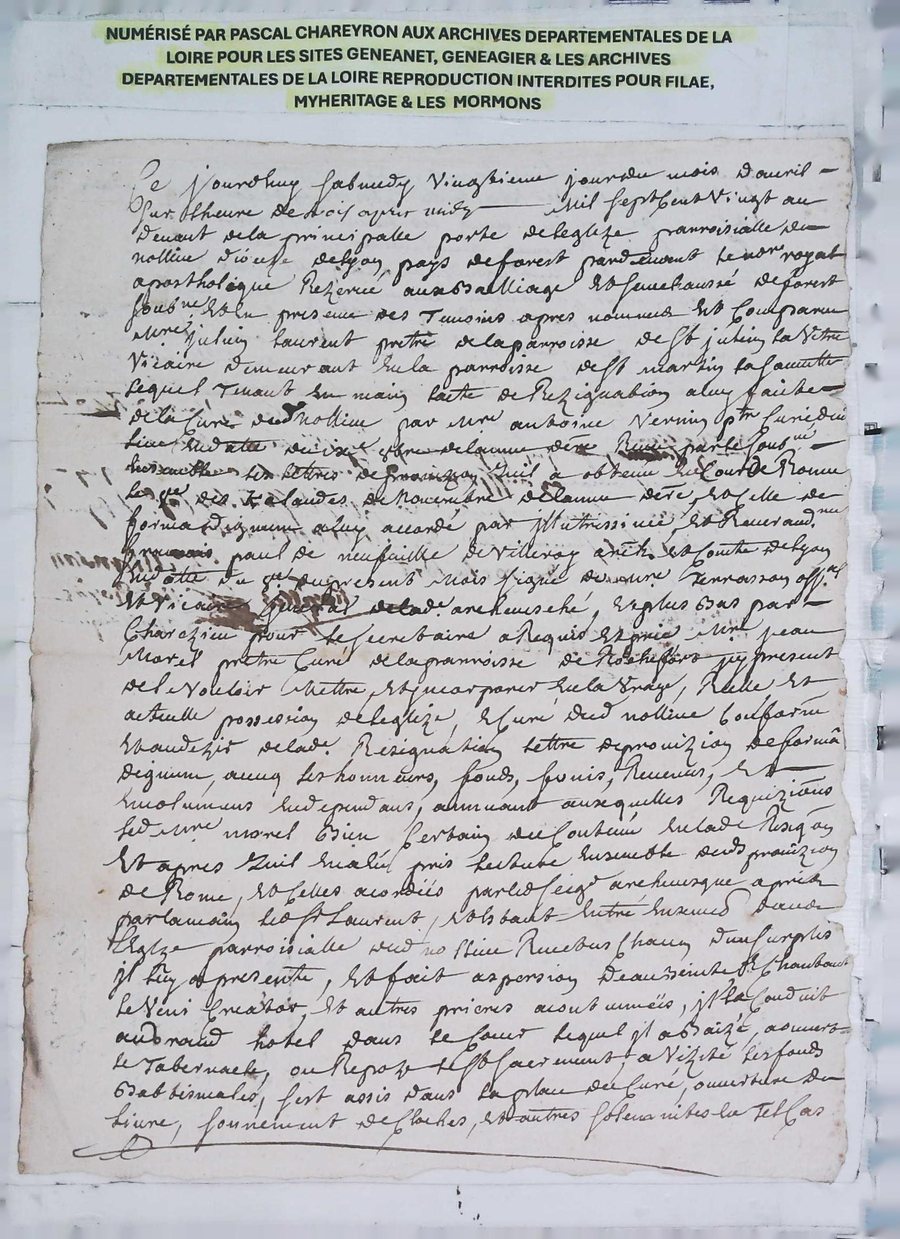 NUMÉRISÉ PAR PASCAL CHAREYRON AUX ARCHIVES DEPARTEMENTALES DE LA
LOIRE POUR LES SITES GENEANET, GENEAGIER & LES ARCHIVES
DEPARTEMENTALES DE LA LOIRE REPRODUCTION INTERDITES POUR FILAE,
MYHERITAGE & LES MORMONS
Ce jourdhuy sabmedy vingtieme jour du mois davril
sur lheure de trois apres midy mil sept cent vingt au
devant de la principalle porte de leglize parroisialle de
nolliue dioceze de lyon pays de forest pardevant le nore royal
aposthelique rezervé aux bailliage et senechaussé de forest
soubné et en presence des tesmoins apres nommes est comparu
mre julien laurent pretre de la parroisse de st julien la vetre
vicaire demeurant en la parroisse de st martin la sauvetté
lequel tenant en main lacte de rezignation a luy faitte
de la cure dud nolliue par mre antoine verniy ptre curé du
lieu en datte du de lanné dere par le soubné
ensemble les lettres de provizion quil a obtenu en cour de rome
le des kalandes de novembre de lanné dere, et celle de
forma dignum a luy accordé par illustrissime et reverand.
francois paul de neufville de villeroy arch. et comte de lyon
en datte du du present mois signé de mre terrasson
et vicaire general de lade archevesché, et plus bas par
charezieu pour le secretaire a requis et prié mre jean
morel pretre curé de la parroisse de rochefort icy present
de le vouloir mettre, et incorporer en la vraye, réelle et
actuelle possession de leglize, et curé dud nolliue conform
et au dezir de lade resignation lettre de provizion de forma
dignum, avecq les honneurs, fonds, fruis, revenus, et
emolumens en dependans, a quoy auxquelles requizitions
led mre morel bien certain du contenu en lade resigon
et apres quil en a eu pris lecture ensemble desds provizion
de rome, et celles acordées par led seigr archevesque a pris
par la main led sr laurent, et estant entré ensemble dans
leglze parroisialle dud nolliue revetus chacun dun surplis
il luy a presenté, et fait aspersion deau beinite et chantant
le veni creator, et autres prieres acoutumées, il la conduit
au grand hotel dans le coeur lequel il a baizé, a ouvert
le tabernacle, ou repoze le st sacrement, a vizité les fonds
babtismales, sest assis dans la place du curé, ouverture du
livre, sonnement de cloches, et autres solemnites en tel cas